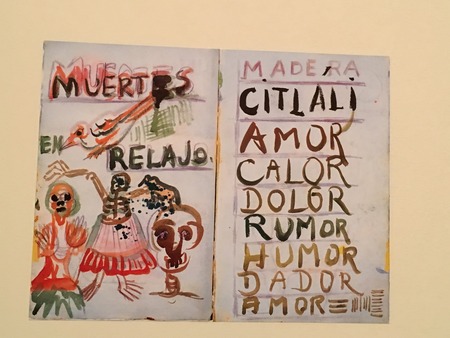 MUERTES
EN
RELAJO.
MADERA
CITLALI
AMOR
CALOR
DOLOR
RUMOR
HUMOR
DADOR
AMOR